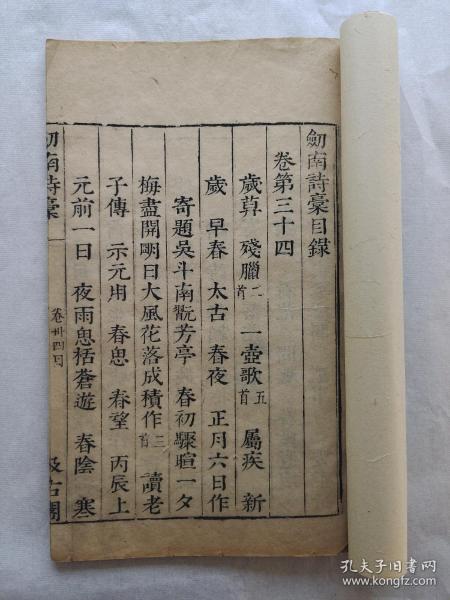 劒南詩稾目錄
卷第三十四
歲莫　殘臘二首　一壺歌五首　屬疾　新
歲　早春　太古　春夜　正月六日作
寄題吳斗南翫芳亭　春初驟暄一夕
梅盡開明日大風花落成積作三首　讀老
子傳　示元用　春思　春望　丙辰上
元前一日　夜雨思括蒼遊　春陰　寒
劒南詩稾
卷卅四目
汲古閣
孔夫子旧书网
www.kongfz.com